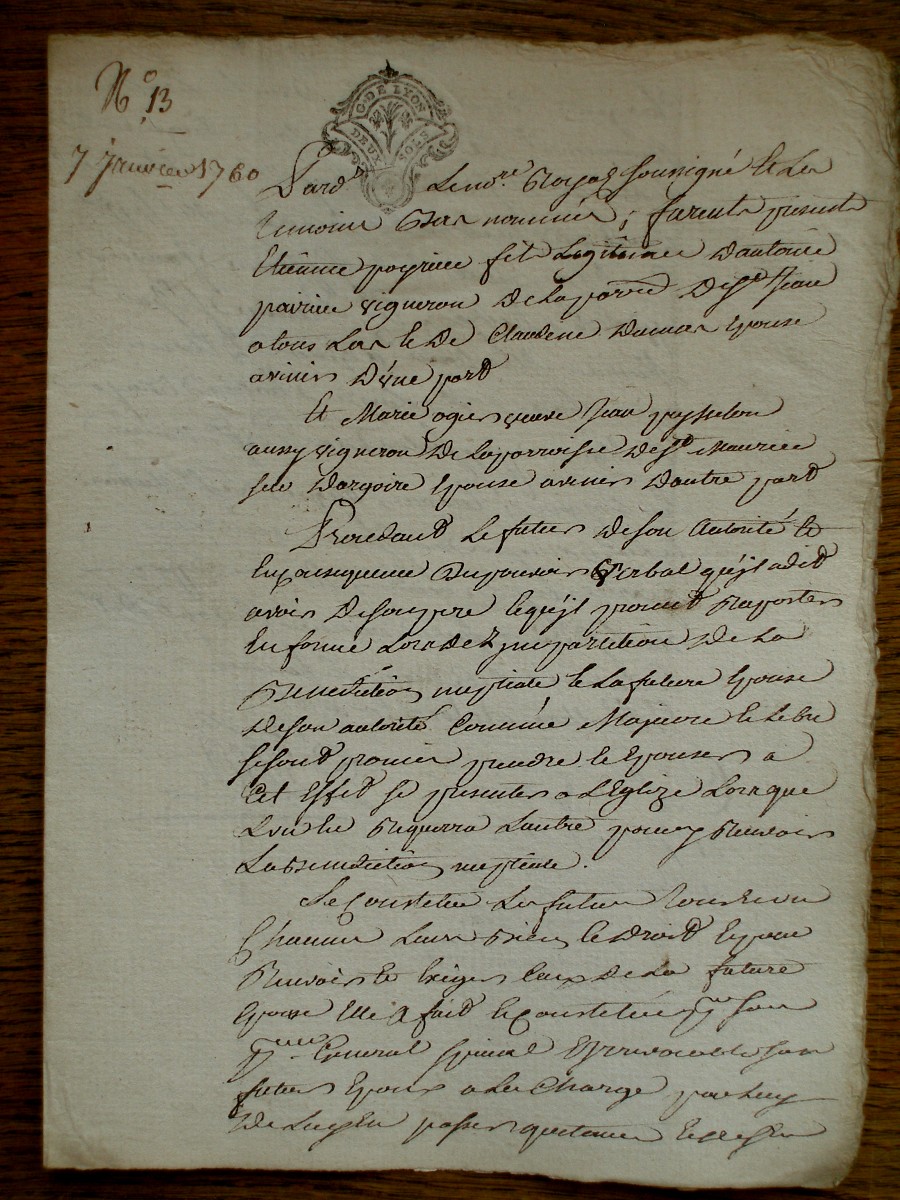 N° 13
7 Janvier 1760
G. DE LYON
DEUX SOLS
Pard. Le no.re Royal soussigné et Les
temoins Bas nommés ; furent presents
Etienne payrieu fils Legitime dantoine
pairieu vigneron De La parr.e De St Jean
a tous Las et De Claudine Dumas Epouse
avenir D'une part
Et Marie ogier veuve Jean peysselon
aussy vigneron De La parroisse De St Maurice
sur Dargoire Epouse avenir Dautre part
Procedant Le futur De son autorité et
En Consequence Du pouvoir verbal qu'il a dit
avoir De son pere lequel promet Raporter
En forme Lors De L'impartition De La
Benediction nuptiale et La future Epouse
De son autorité Comme Majeure et Libre
se sont promis prendre et Epouser a
Cet Effet se presenter a L'Eglize Lorsque
L'un En Requerra Lautre pour y Recevoir
La Benediction nuptiale .
Se Constitue Les futurs Tous Et un
Chacun Leurs Biens et Droits Et pour
Recevoir Et Exiger Ceux De La future
Epouse Elle a fait et Constitué p.eur son
p.eur General special Et irrevocable son
futur Epoux a La Charge par Luy
De Luy En passer quitance